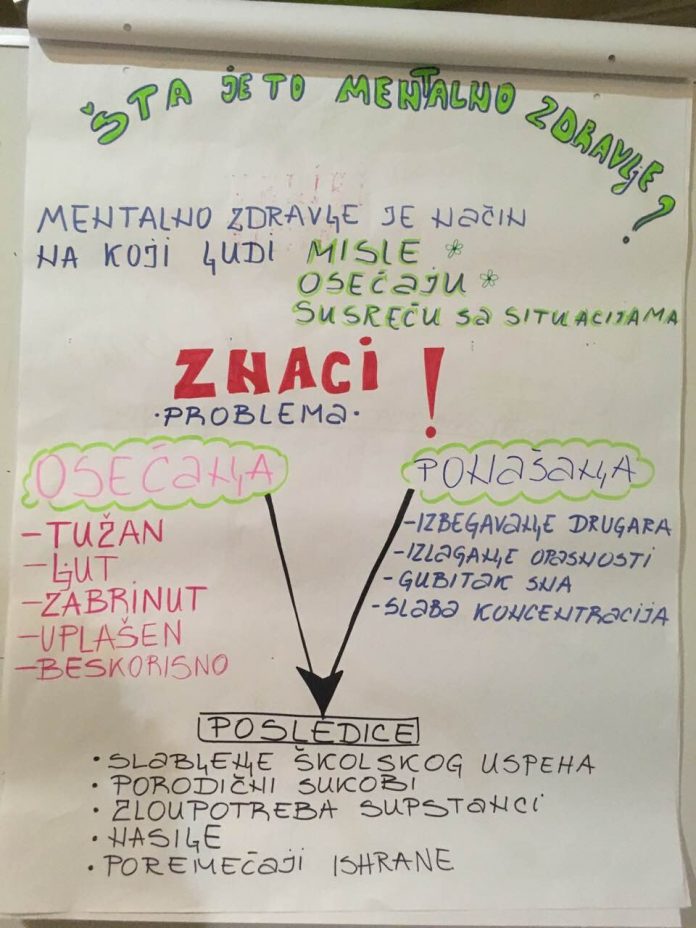 ŠTA JE TO MENTALNO ZDRAVLJE?
MENTALNO ZDRAVLJE JE NAČIN
NA KOJI LJUDI MISLE *
OSEĆAJU *
SUSREĆU SA SITUACIJAMA
ZNACI !
·PROBLEMA·
OSEĆANJA
-TUŽAN
-LJUT
-ZABRINUT
-UPLAŠEN
-BESKORISNO
PONAŠANJA
-IZBEGAVANJE DRUGARA
-IZLAGANJE OPASNOSTI
-GUBITAK SNA
-SLABA KONCENTRACIJA
POSLEDICE
• SLABLJENJE ŠKOLSKOG USPEHA
• PORODIČNI SUKOBI
• ZLOUPOTREBA SUPSTANCI
• NASILJE
• POREMEĆAJI ISHRANE